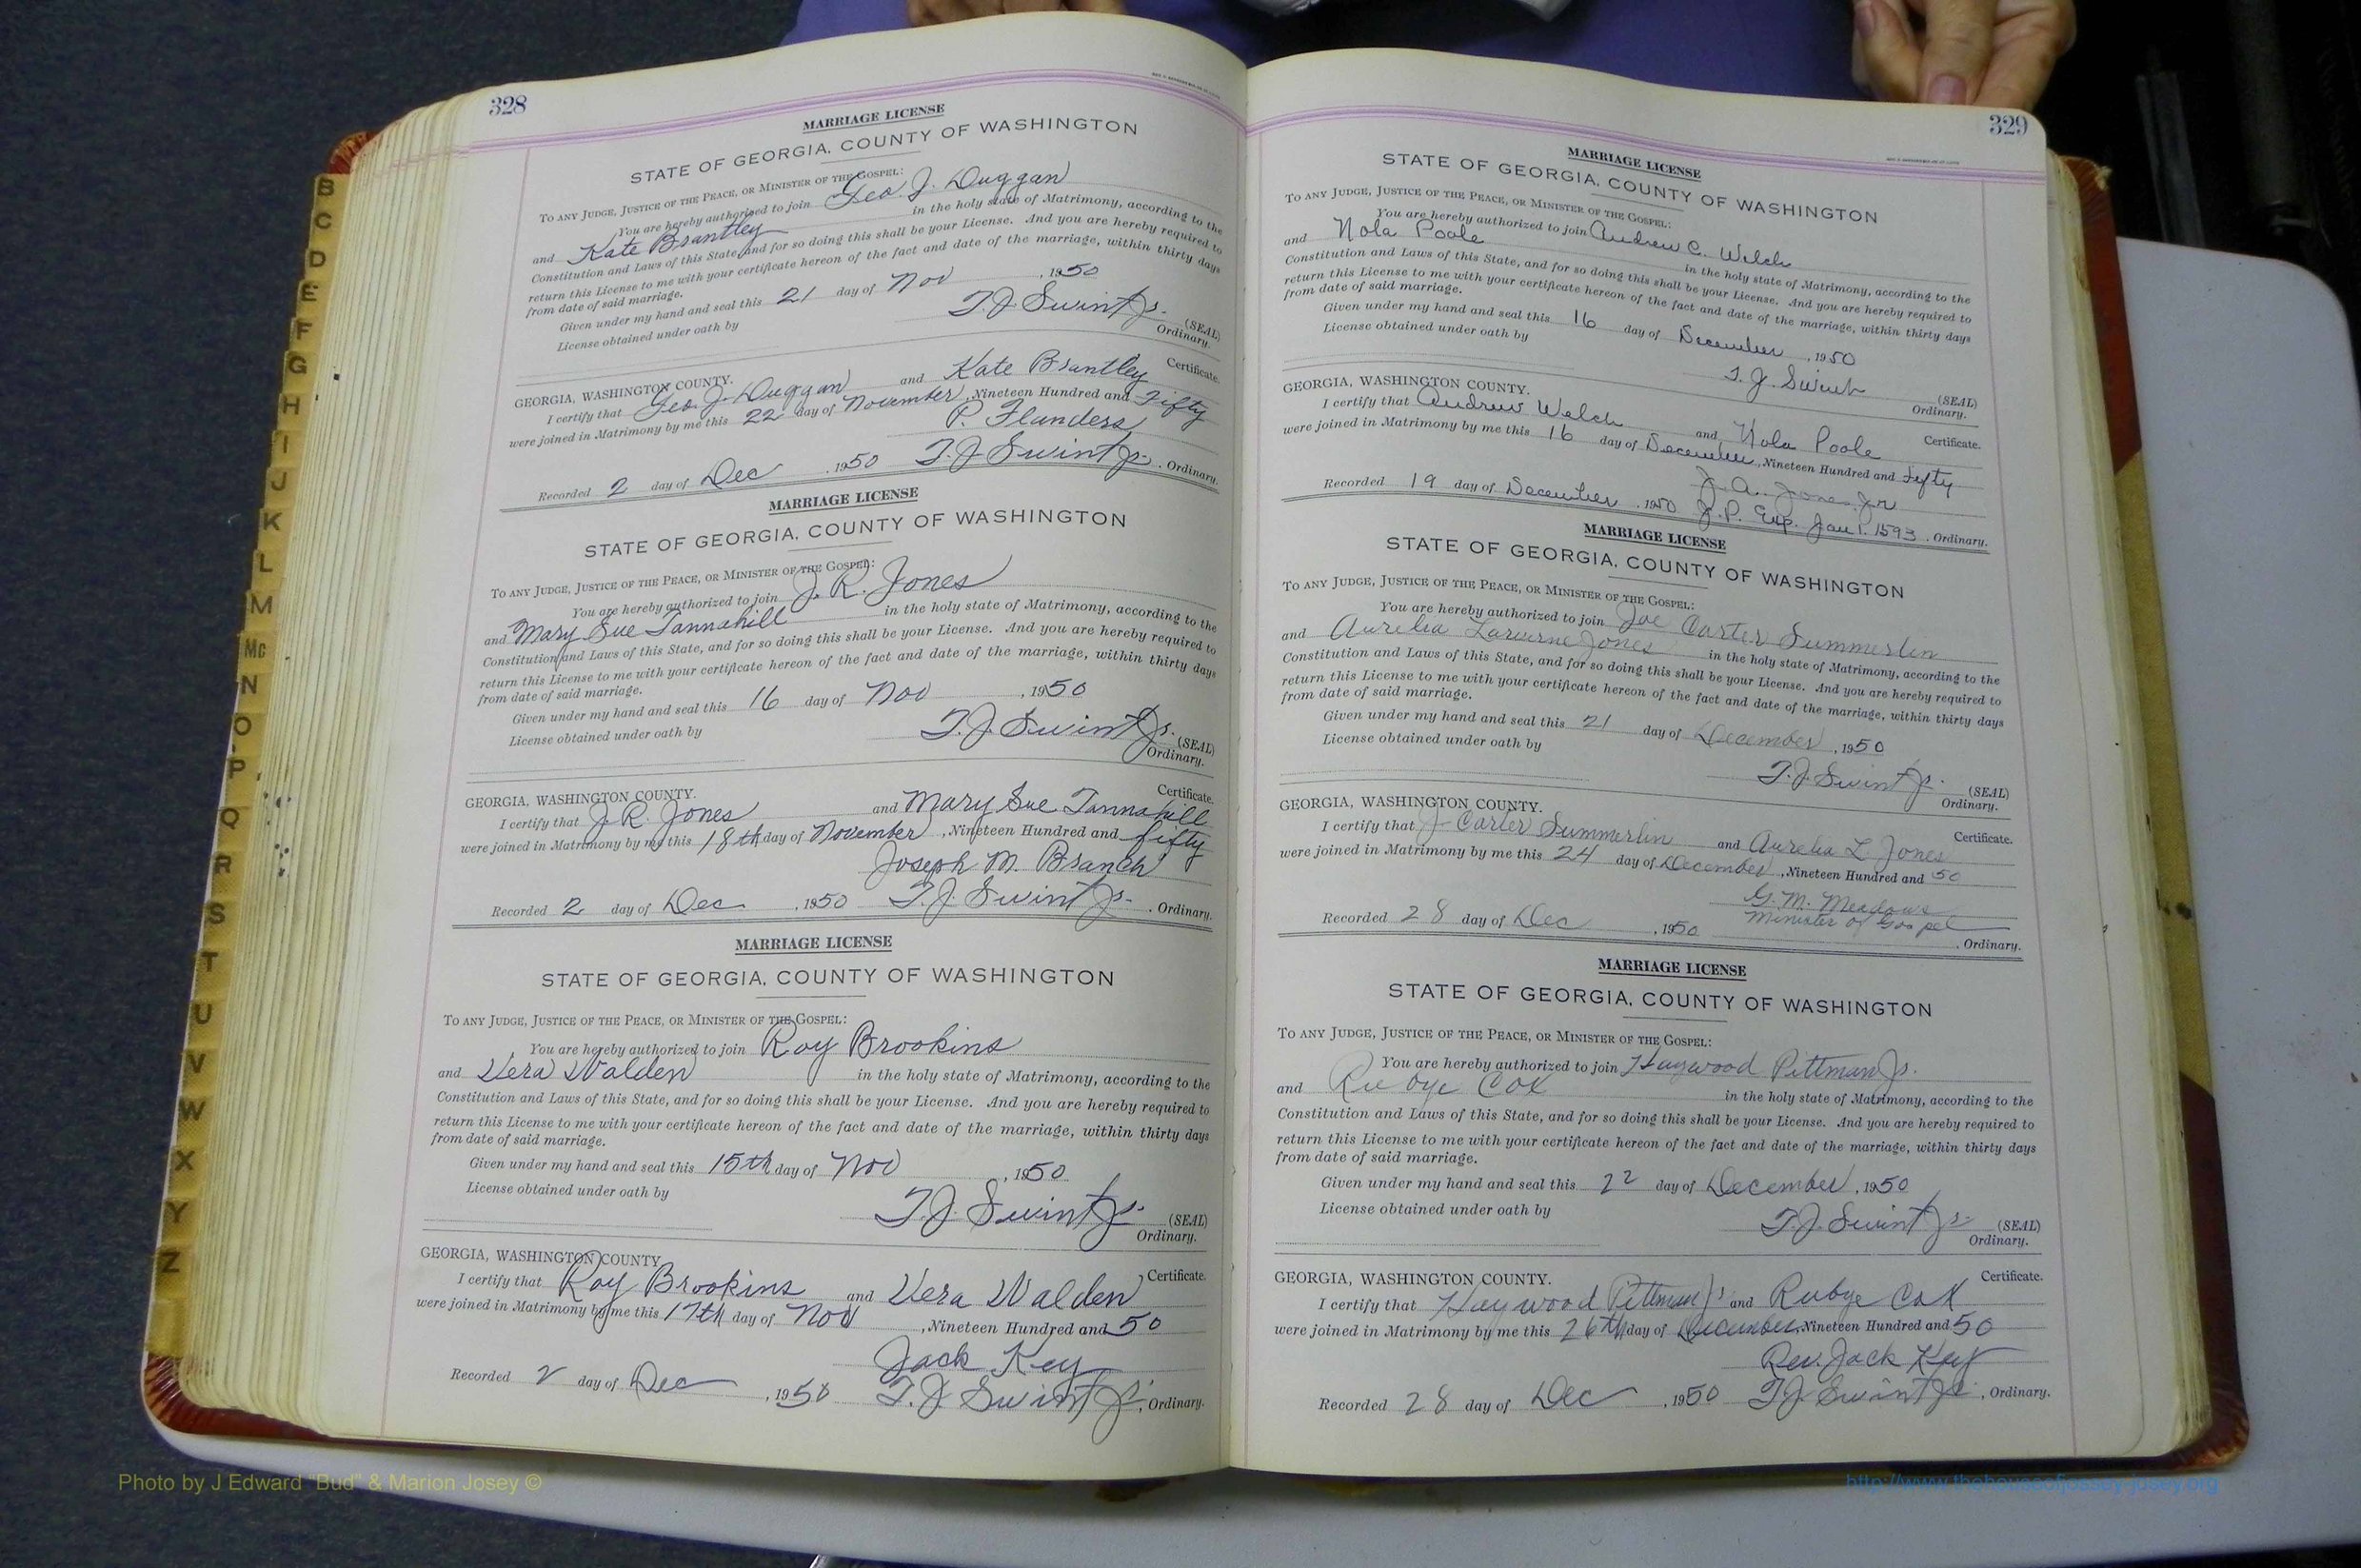 328
MARRIAGE LICENSE
STATE OF GEORGIA, COUNTY OF WASHINGTON
To any Judge, Justice of the Peace, or Minister of the Gospel:
You are hereby authorized to join Geo J. Duggan
and Kate Brantley in the holy state of Matrimony, according to the
Constitution and Laws of this State, and for so doing this shall be your License. And you are hereby required to
return this License to me with your certificate hereon of the fact and date of the marriage, within thirty days
from date of said marriage.
Given under my hand and seal this 21 day of Nov, 1950
License obtained under oath by T. J. Swint Jr. (SEAL)
Ordinary.
GEORGIA, WASHINGTON COUNTY. Certificate.
I certify that Geo. J. Duggan and Kate Brantley
were joined in Matrimony by me this 22 day of November, Nineteen Hundred and Fifty
P. Flanders
Recorded 2 day of Dec, 1950 T. J. Swint Jr., Ordinary.
MARRIAGE LICENSE
STATE OF GEORGIA, COUNTY OF WASHINGTON
To any Judge, Justice of the Peace, or Minister of the Gospel:
You are hereby authorized to join J. R. Jones
and Mary Sue Tannahill in the holy state of Matrimony, according to the
Constitution and Laws of this State, and for so doing this shall be your License. And you are hereby required to
return this License to me with your certificate hereon of the fact and date of the marriage, within thirty days
from date of said marriage.
Given under my hand and seal this 16 day of Nov, 1950
License obtained under oath by T. J. Swint Jr. (SEAL)
Ordinary.
GEORGIA, WASHINGTON COUNTY. Certificate.
I certify that J. R. Jones and Mary Sue Tannahill
were joined in Matrimony by me this 18th day of November, Nineteen Hundred and fifty
Joseph M. Branch
Recorded 2 day of Dec, 1950 T. J. Swint Jr., Ordinary.
MARRIAGE LICENSE
STATE OF GEORGIA, COUNTY OF WASHINGTON
To any Judge, Justice of the Peace, or Minister of the Gospel:
You are hereby authorized to join Roy Brookins
and Vera Walden in the holy state of Matrimony, according to the
Constitution and Laws of this State, and for so doing this shall be your License. And you are hereby required to
return this License to me with your certificate hereon of the fact and date of the marriage, within thirty days
from date of said marriage.
Given under my hand and seal this 15th day of Nov, 1950
License obtained under oath by T. J. Swint Jr. (SEAL)
Ordinary.
GEORGIA, WASHINGTON COUNTY Certificate.
I certify that Roy Brookins and Vera Walden
were joined in Matrimony by me this 17th day of Nov, Nineteen Hundred and 50
Jack Key
Recorded 2 day of Dec, 1950 T. J. Swint Jr., Ordinary.
329
MARRIAGE LICENSE
STATE OF GEORGIA, COUNTY OF WASHINGTON
To any Judge, Justice of the Peace, or Minister of the Gospel:
You are hereby authorized to join Andrew C. Welch
and Nola Poole in the holy state of Matrimony, according to the
Constitution and Laws of this State, and for so doing this shall be your License. And you are hereby required to
return this License to me with your certificate hereon of the fact and date of the marriage, within thirty days
from date of said marriage.
Given under my hand and seal this 16 day of December, 1950
License obtained under oath by T. J. Swint (SEAL)
Ordinary.
GEORGIA, WASHINGTON COUNTY. Certificate.
I certify that Andrew Welch and Nola Poole
were joined in Matrimony by me this 16 day of December, Nineteen Hundred and Fifty
J. A. Jones Jr
Recorded 19 day of December, 1950 J. P. Exp. Jan 1. 1593. Ordinary.
MARRIAGE LICENSE
STATE OF GEORGIA, COUNTY OF WASHINGTON
To any Judge, Justice of the Peace, or Minister of the Gospel:
You are hereby authorized to join Joe Carter Summerlin
and Aurelia Laverne Jones in the holy state of Matrimony, according to the
Constitution and Laws of this State, and for so doing this shall be your License. And you are hereby required to
return this License to me with your certificate hereon of the fact and date of the marriage, within thirty days
from date of said marriage.
Given under my hand and seal this 21 day of December, 1950
License obtained under oath by T. J. Swint Jr. (SEAL)
Ordinary.
GEORGIA, WASHINGTON COUNTY. Certificate.
I certify that J Carter Summerlin and Aurelia L. Jones
were joined in Matrimony by me this 24 day of December, Nineteen Hundred and 50
G. M. Meadows
Minister of Gospel
Recorded 28 day of Dec, 1950. Ordinary.
MARRIAGE LICENSE
STATE OF GEORGIA, COUNTY OF WASHINGTON
To any Judge, Justice of the Peace, or Minister of the Gospel:
You are hereby authorized to join Haywood Pittman Jr.
and Rubye Cox in the holy state of Matrimony, according to the
Constitution and Laws of this State, and for so doing this shall be your License. And you are hereby required to
return this License to me with your certificate hereon of the fact and date of the marriage, within thirty days
from date of said marriage.
Given under my hand and seal this 22 day of December, 1950
License obtained under oath by T. J. Swint Jr. (SEAL)
Ordinary.
GEORGIA, WASHINGTON COUNTY. Certificate.
I certify that Haywood Pittman Jr and Rubye Cox
were joined in Matrimony by me this 26th day of December, Nineteen Hundred and 50
Rev. Jack Key
Recorded 28 day of Dec, 1950 T. J. Swint Jr., Ordinary.
B
C
D
E
F
G
H
I
J
K
L
M
Mc
N
O
P
Q
R
S
T
U
V
W
X
Y
Z
Photo by J Edward "Bud" & Marion Josey ©
http://www.thehouseofjossey-josey.org